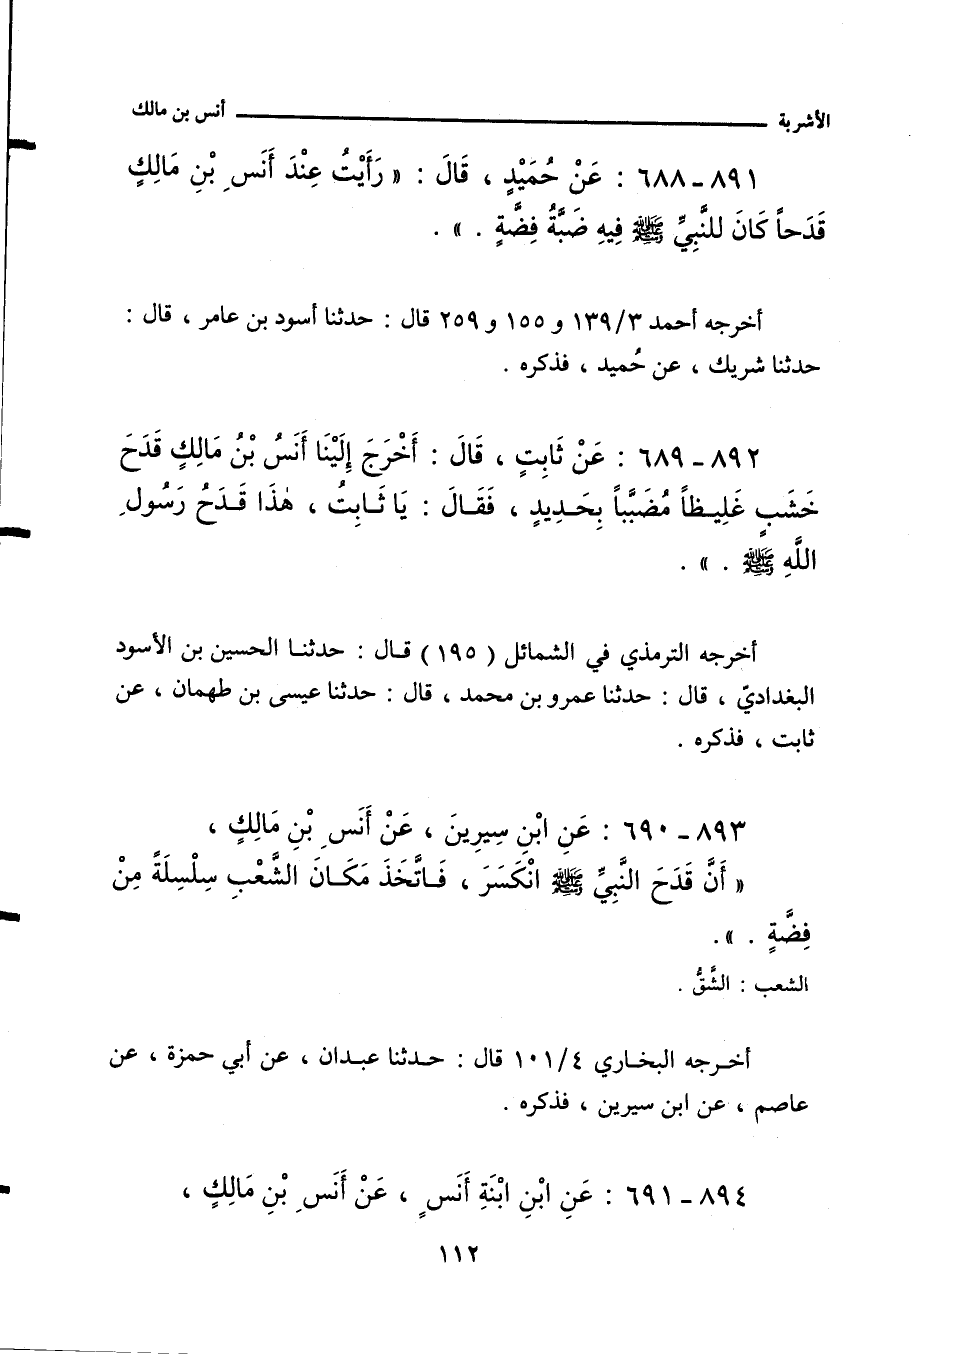 الأشربة ــــــــــــــــــــ أنس بن مالك
٨٩١ - ٦٨٨ : عَنْ حُمَيْدٍ ، قَالَ : « رَأَيْتُ عِنْدَ أَنَسِ بْنِ مَالِكٍ
قَدَحاً كَانَ للنَّبِيِّ ﷺ فِيهِ ضَبَّةُ فِضَّةٍ . » .
أخرجه أحمد ٣/١٣٩ و ١٥٥ و ٢٥٩ قال : حدثنا أسود بن عامر ، قال :
حدثنا شريك ، عن حُميد ، فذكره .
٨٩٢ - ٦٨٩ : عَنْ ثَابِتٍ ، قَالَ : أَخْرَجَ إِلَيْنَا أَنَسُ بْنُ مَالِكٍ قَدَحَ
خَشَبٍ غَلِيظاً مُضَبَّباً بِحَدِيدٍ ، فَقَالَ : يَا ثَابِتُ ، هٰذَا قَدَحُ رَسُولِ
اللَّهِ ﷺ . » .
أخرجه الترمذي في الشمائل ( ١٩٥ ) قال : حدثنا الحسين بن الأسود
البغداديّ ، قال : حدثنا عمرو بن محمد ، قال : حدثنا عيسى بن طهمان ، عن
ثابت ، فذكره .
٨٩٣ - ٦٩٠ : عَنِ ابْنِ سِيرِينَ ، عَنْ أَنَسِ بْنِ مَالِكٍ ،
« أَنَّ قَدَحَ النَّبِيِّ ﷺ انْكَسَرَ ، فَاتَّخَذَ مَكَانَ الشَّعْبِ سِلْسِلَةً مِنْ
فِضَّةٍ . ».
الشعب : الشَّقُّ .
أخرجه البخاري ٤/١٠١ قال : حدثنا عبدان ، عن أبي حمزة ، عن
عاصم ، عن ابن سيرين ، فذكره .
٨٩٤ - ٦٩١ : عَنِ ابْنِ ابْنَةِ أَنَسٍ ، عَنْ أَنَسِ بْنِ مَالِكٍ ،
١١٢